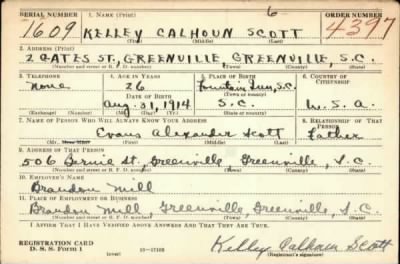 SERIAL NUMBER 1. NAME (Print) 6 ORDER NUMBER
1609 KELLEY CALHOUN SCOTT 4397
(First) (Middle) (Last)
2. ADDRESS (Print)
2 GATES ST., GREENVILLE GREENVILLE, S.C.
(Number and street or R. F. D. number) (Town) (County) (State)
3. TELEPHONE 4. AGE IN YEARS 5. PLACE OF BIRTH 6. COUNTRY OF CITIZENSHIP
none 26 Fountain Inn, S.C.
DATE OF BIRTH (Town or county)
Aug. 31, 1914 S.C. U.S.A.
(Exchange) (Number) (Mo.) (Day) (Yr.) (State or country)
7. NAME OF PERSON WHO WILL ALWAYS KNOW YOUR ADDRESS 8. RELATIONSHIP OF THAT PERSON
Evans Alexander Scott Father
(First) (Middle) (Last)
9. ADDRESS OF THAT PERSON
506 Greenville Greenville, S.C.
(Number and street or R. F. D. number) (Town) (County) (State)
10. EMPLOYER'S NAME
Brandon Mill
11. PLACE OF EMPLOYMENT OR BUSINESS
Brandon Mill Greenville, Greenville, S.C.
(Number and street or R. F. D. number) (Town) (County) (State)
I AFFIRM THAT I HAVE VERIFIED ABOVE ANSWERS AND THAT THEY ARE TRUE.
REGISTRATION CARD
D. S. S. FORM 1 (over) 16-17105 Kelley Calhoun Scott
(Registrant's signature)